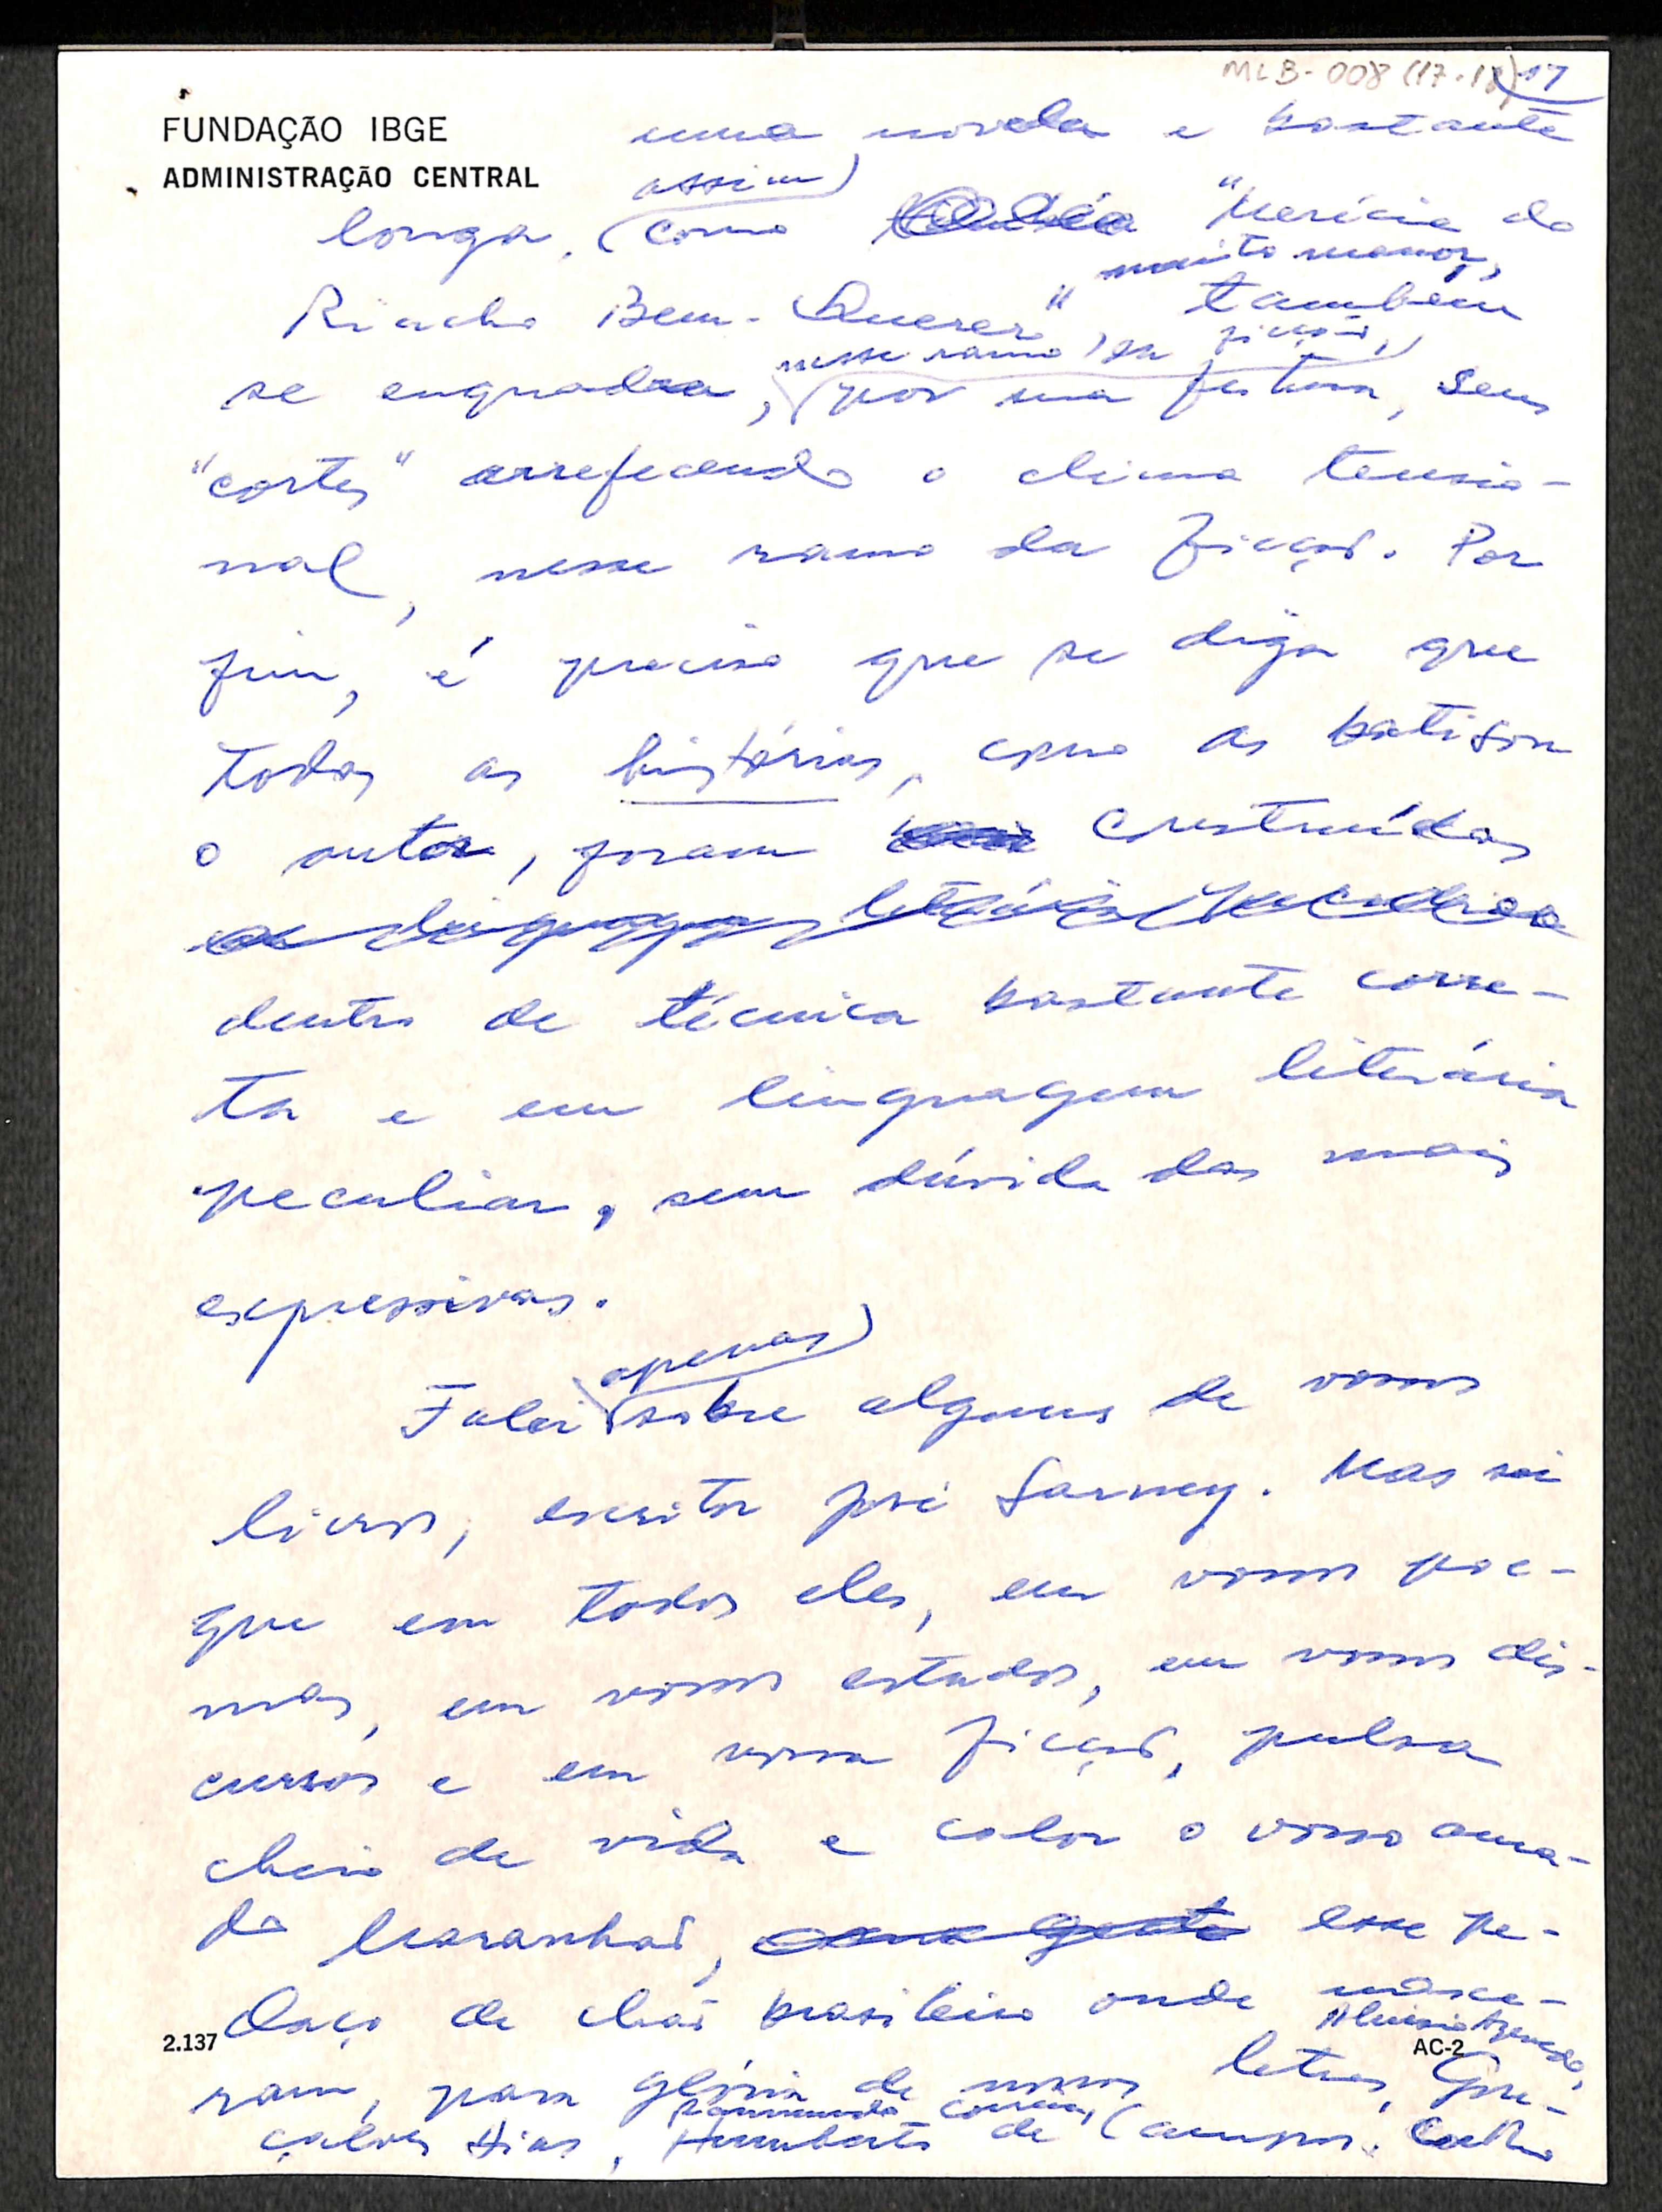 MLB-008 (17-18) 17
FUNDAÇÃO IBGE
ADMINISTRAÇÃO CENTRAL
uma novela e bastante
assim
longa, como "Merícia do
muito menor,
Riacho Bem-Querer", também
nesse ramo da ficção,
se enquadra, por sua feitura, seus
"cortes" arrefecendo o clima tensio-
nal, nesse ramo da ficção. Por
fim, é preciso que se diga que
todas as histórias, como as batisou
o autor, foram construídas
dentro de técnica bastante corre-
ta e em linguagem literária
peculiar, sem dúvida das mais
expressivas.
apenas
Falei sobre alguns de vossos
livros, escritor José Sarney. Mas sei
que em todos eles, em vossos poe-
mas, em vossos estudos, em vossos dis-
cursos e em vossa ficção, pulsa
cheio de vida e calor o vosso ama-
do Maranhão, esse pe-
daço de chão brasileiro onde nasce-
Aluisio Azevedo,
2.137
AC-2
ram, para glória de nossas letras, Gon-
Raimundo Correia,
çalves Dias, Humberto de Campos, Coelho